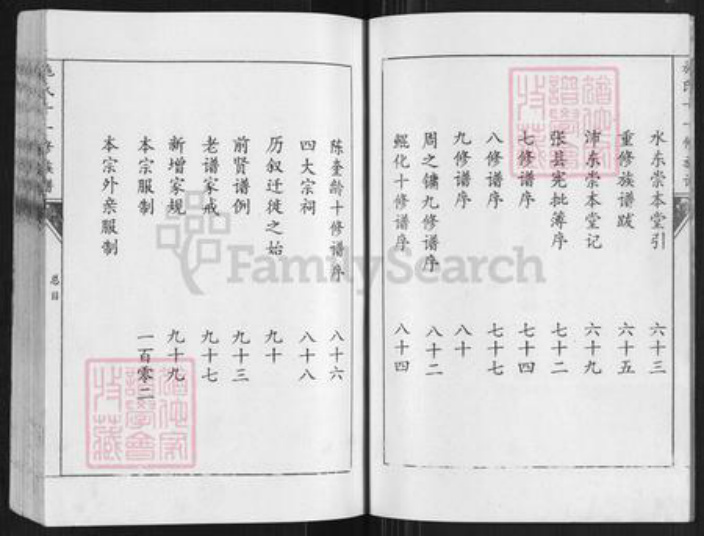 水东崇本堂引 六十三
重修族谱跋 六十五
沛东崇本堂记 六十九
张县宪批簿序 七十二
七修谱序 七十四
八修谱序 七十七
九修谱序 八十
周之镛九修谱序 八十二
鲲化十修谱序 八十四
陈奎龄十修谱序 八十六
四大宗祠 八十八
历叙迁徙之始 九十
前贤谱例 九十三
老谱家戒 九十七
新增家规 九十九
本宗服制 一百零二
本宗外亲服制
卷目
FamilySearch